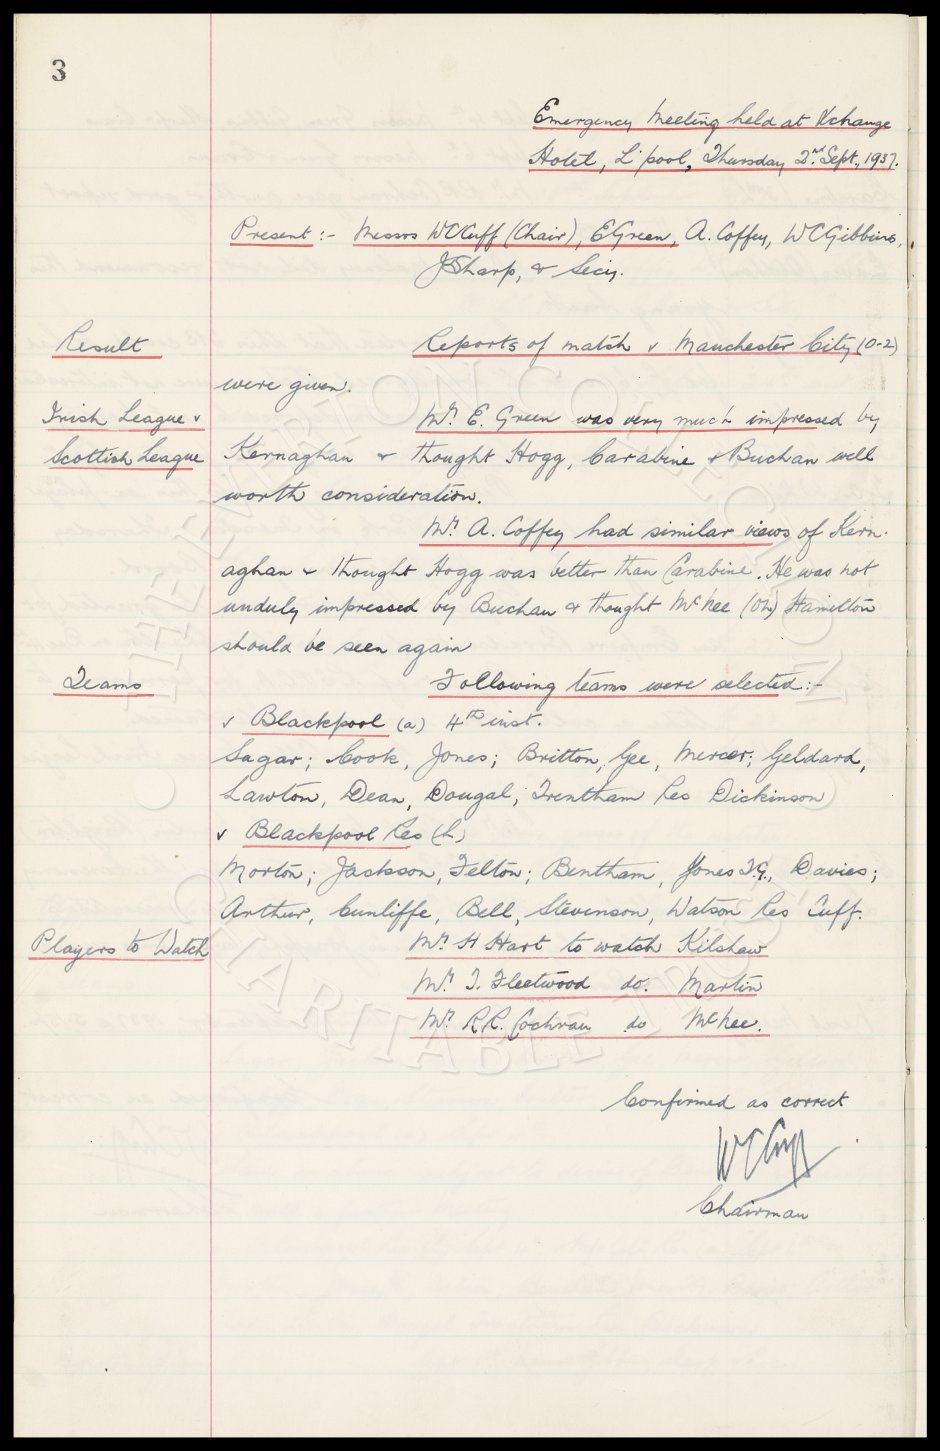 3
Emergency Meeting held at Xchange
Hotel, L'pool, Thursday 2nd Sept., 1937.
Present :- Messrs WCCuff (Chair), EGreen, A. Coffey, WCGibbins,
JSharp, & Secy.
Result
Reports of match v Manchester City (0-2)
were given.
Irish League v
Scottish League
Mr. E. Green was very much impressed by
Kernaghan & thought Hogg, Carabine & Buchan well
worth consideration.
Mr A. Coffey had similar views of Kern-
aghan & thought Hogg was better than Carabine. He was not
unduly impressed by Buchan & thought McNee (OL) Hamilton
should be seen again
Teams
Following teams were selected :-
v Blackpool (a) 4th inst.
Sagar; Cook, Jones; Britton, Gee, Mercer; Geldard,
Lawton, Dean, Dougal, Trentham Res Dickinson
v Blackpool Res (h)
Morton; Jackson, Felton; Bentham, Jones T.G., Davies;
Arthur, Cunliffe, Bell, Stevenson, Watson Res Cuff.
Players to Watch
Mr. H Hart to watch Kilshaw
Mr. T. Fleetwood do. Martin
Mr. R.R. Cochran do McNee.
Confirmed as correct
WCCuff
Chairman
THE EVERTON COLLECTION
CHARITABLE TRUST